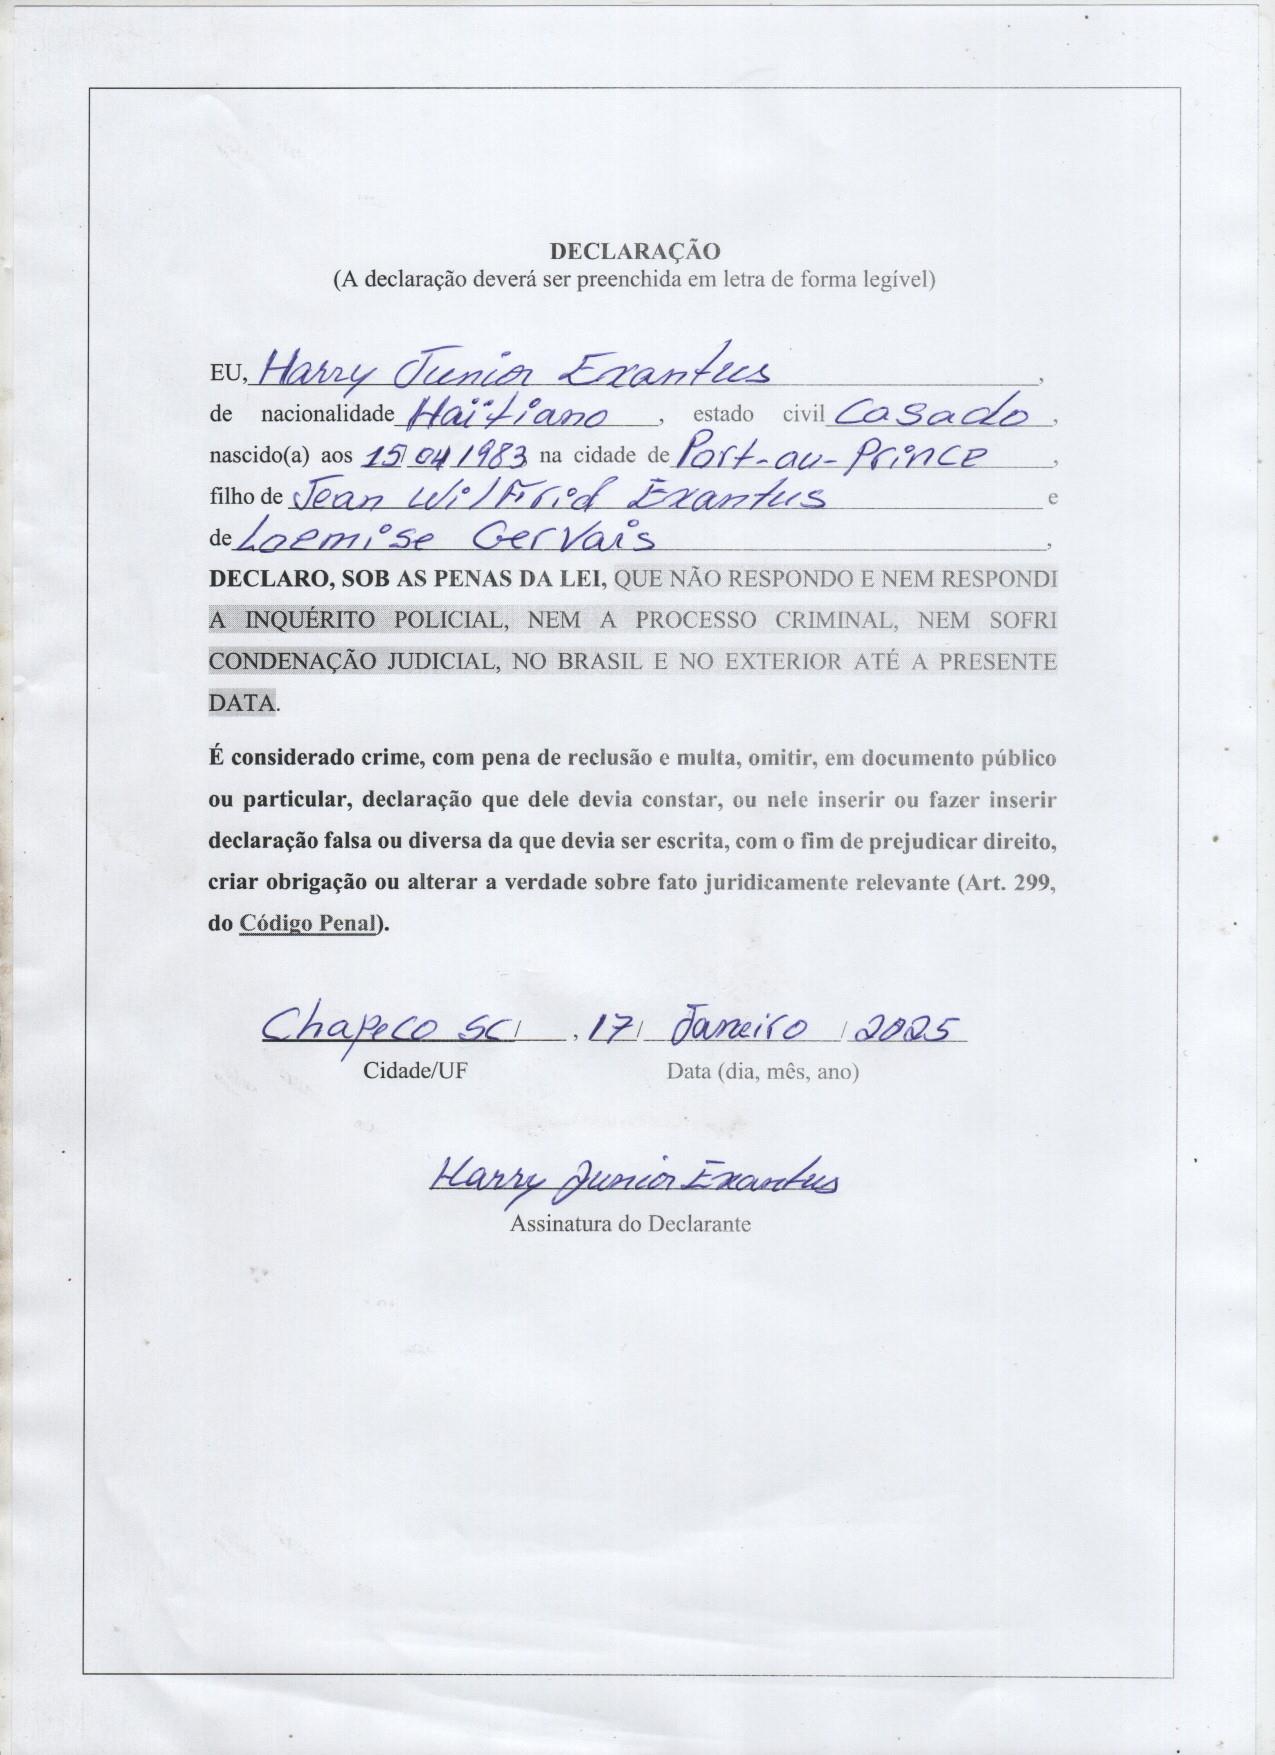 DECLARAÇÃO
(A declaração deverá ser preenchida em letra de forma legível)
EU, Harry Junior Exantus,
de nacionalidade Haïtiano, estado civil Casado,
nascido(a) aos 15/04/1983 na cidade de Port-au-Prince,
filho de Jean Wilfrid Exantus e
de Loemise Gervais,
DECLARO, SOB AS PENAS DA LEI, QUE NÃO RESPONDO E NEM RESPONDI
A INQUÉRITO POLICIAL, NEM A PROCESSO CRIMINAL, NEM SOFRI
CONDENAÇÃO JUDICIAL, NO BRASIL E NO EXTERIOR ATÉ A PRESENTE
DATA.
É considerado crime, com pena de reclusão e multa, omitir, em documento público
ou particular, declaração que dele devia constar, ou nele inserir ou fazer inserir
declaração falsa ou diversa da que devia ser escrita, com o fim de prejudicar direito,
criar obrigação ou alterar a verdade sobre fato juridicamente relevante (Art. 299,
do Código Penal).
Chapeco SC/ , 17/ Janeiro / 2025
Cidade/UF Data (dia, mês, ano)
Harry Junior Exantus
Assinatura do Declarante